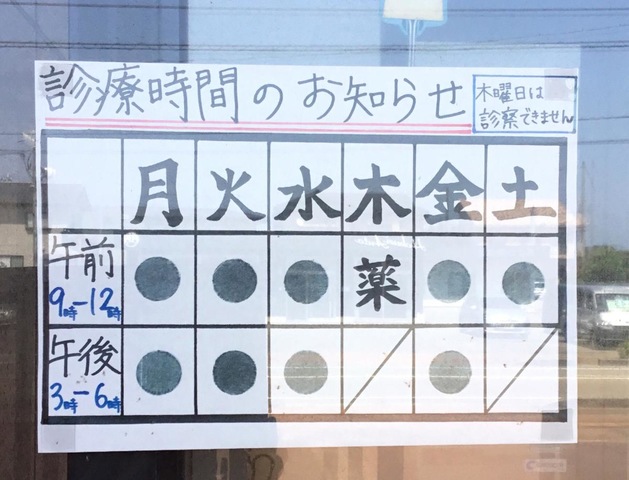 診療時間のお知らせ
木曜日は
診察できません
月 火 水 木 金 土
午前 ● ● ● 薬 ● ●
9時-12時
午後 ● ● ● ／ ● ／
3時-6時